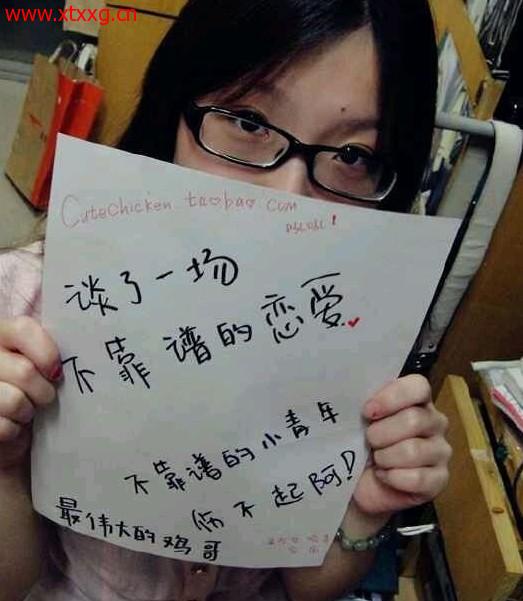 www.xtxxg.cn
Cutechicken.taobao.com
谈了一场
不靠谱的恋爱
不靠谱的小青年
伤不起啊!
最伟大的鸡哥